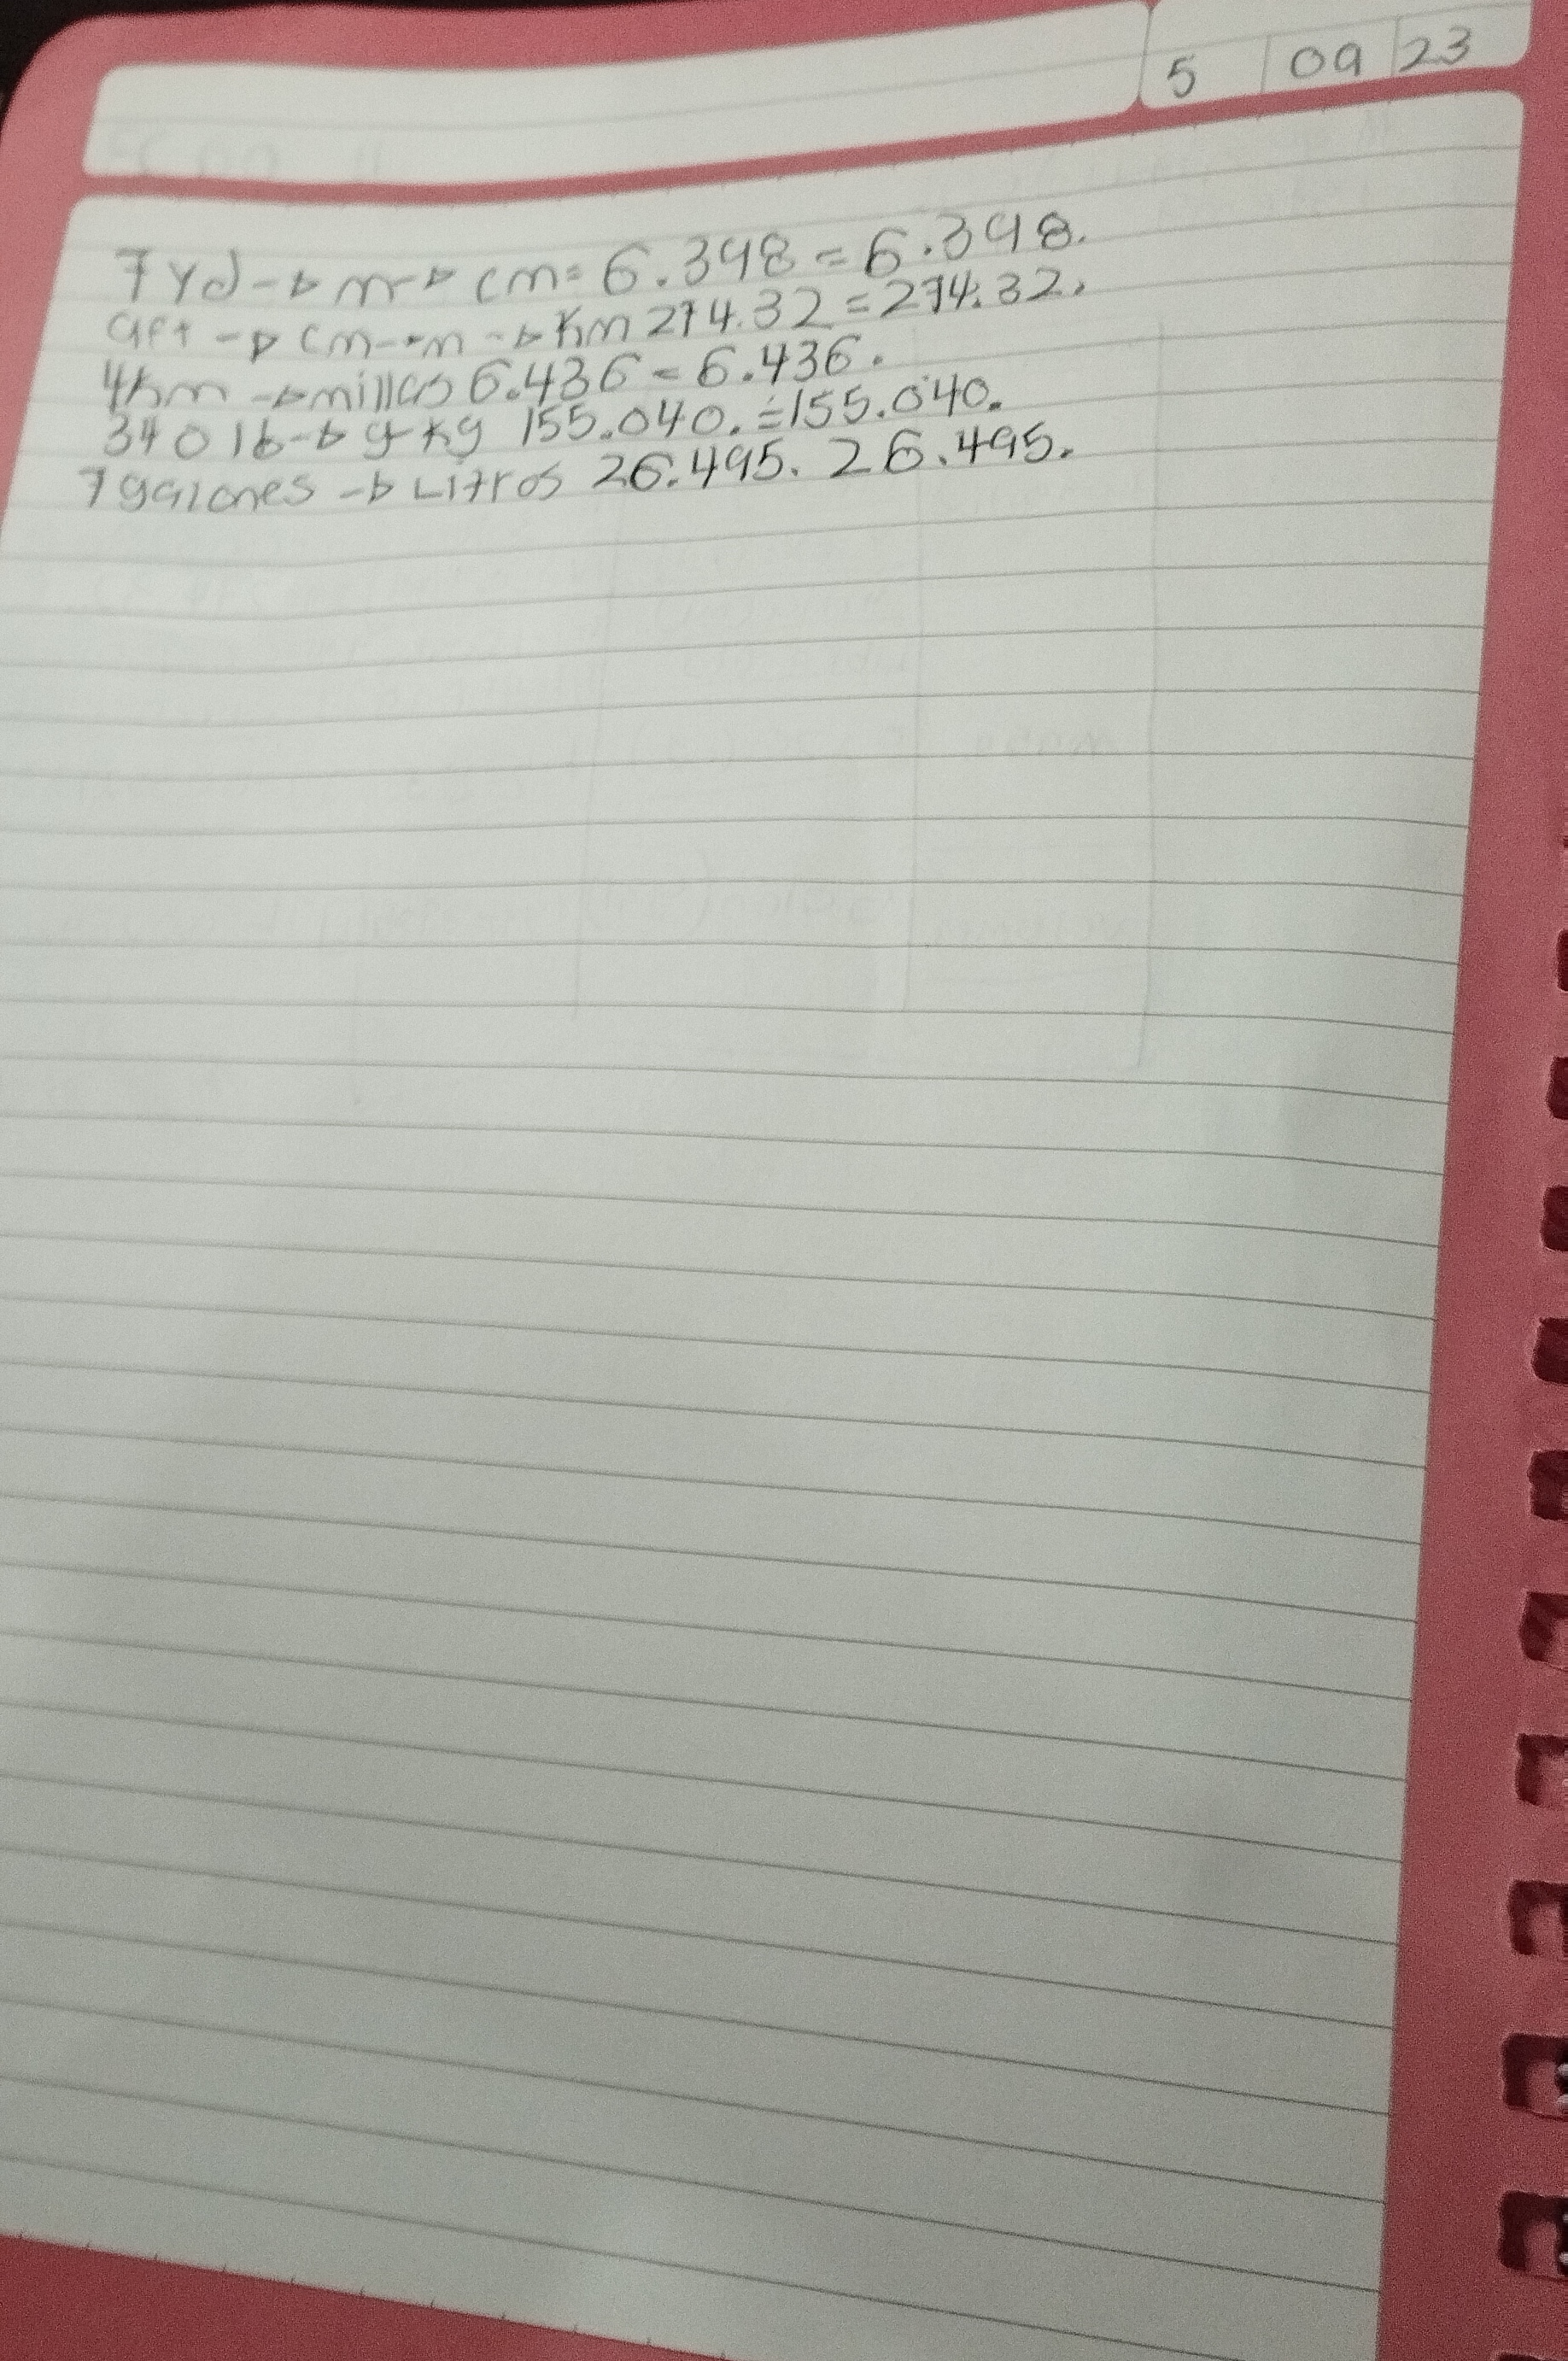 5 09 23
7 yd → m → cm = 6.398 = 6.398.
9ft → cm → m → Km 274.32 = 274.32.
4Km → millas 6.436 = 6.436.
340 lb → g → Kg 155.040. = 155.040.
7 galones → Litros 26.495. 26.495.